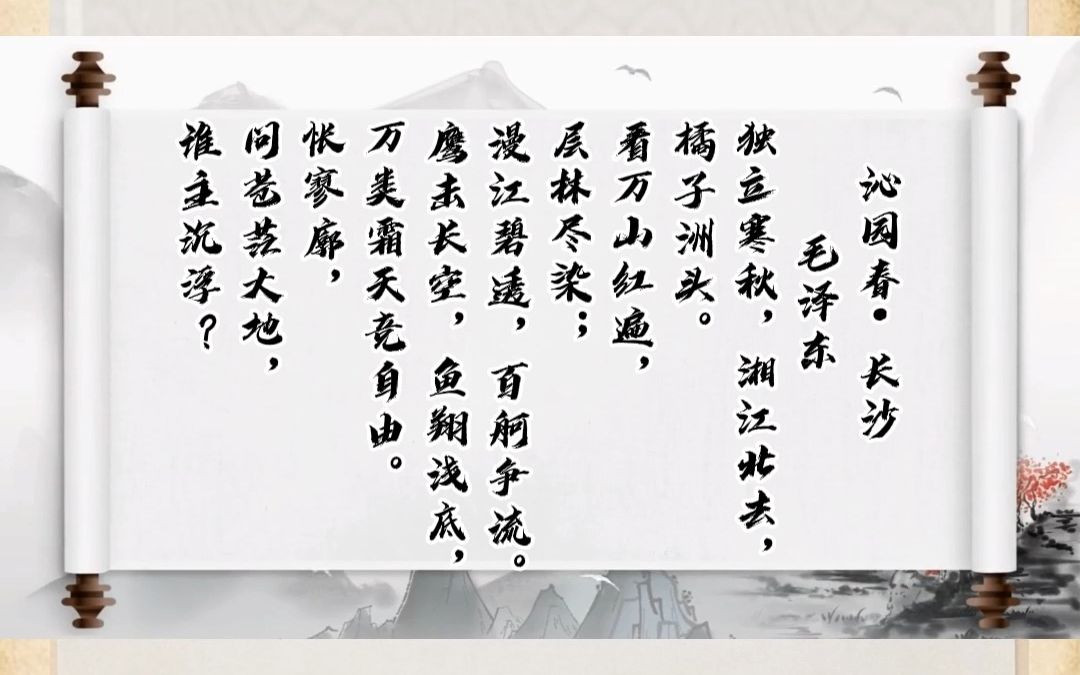 沁园春·长沙
毛泽东
独立寒秋，湘江北去，
橘子洲头。
看万山红遍，
层林尽染；
漫江碧透，百舸争流。
鹰击长空，鱼翔浅底，
万类霜天竞自由。
怅寥廓，
问苍茫大地，
谁主沉浮？